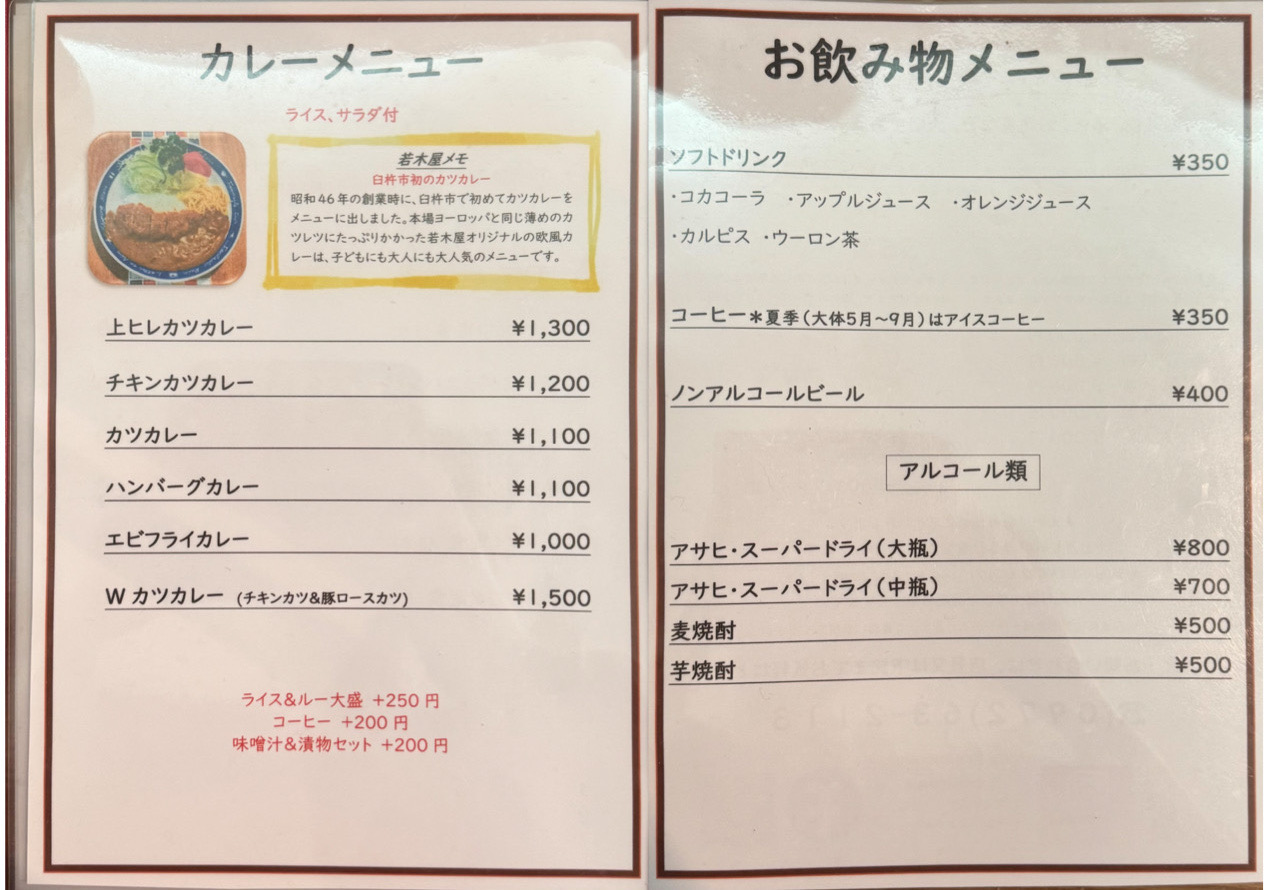 カレーメニュー
ライス、サラダ付
若木屋メモ
臼杵市初のカツカレー
昭和46年の創業時に、臼杵市で初めてカツカレーを
メニューに出しました。本場ヨーロッパと同じ薄めのカ
ツレツにたっぷりかかった若木屋オリジナルの欧風カ
レーは、子どもにも大人にも大人気のメニューです。
上ヒレカツカレー ¥1,300
チキンカツカレー ¥1,200
カツカレー ¥1,100
ハンバーグカレー ¥1,100
エビフライカレー ¥1,000
W カツカレー (チキンカツ&豚ロースカツ) ¥1,500
ライス&ルー大盛 +250 円
コーヒー +200 円
味噌汁&漬物セット +200 円
お飲み物メニュー
ソフトドリンク ¥350
・コカコーラ ・アップルジュース ・オレンジジュース
・カルピス ・ウーロン茶
コーヒー＊夏季（大体5月〜9月）はアイスコーヒー ¥350
ノンアルコールビール ¥400
アルコール類
アサヒ・スーパードライ（大瓶） ¥800
アサヒ・スーパードライ（中瓶） ¥700
麦焼酎 ¥500
芋焼酎 ¥500